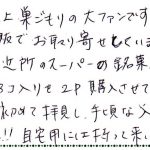 上巣ごもりの大ファンです
販でお取り寄せしてい
近所のスーパーの銘菓
3コ入りを2P購入させて
初めて拝見し、手頃な父
!!自宅用にと持って来い